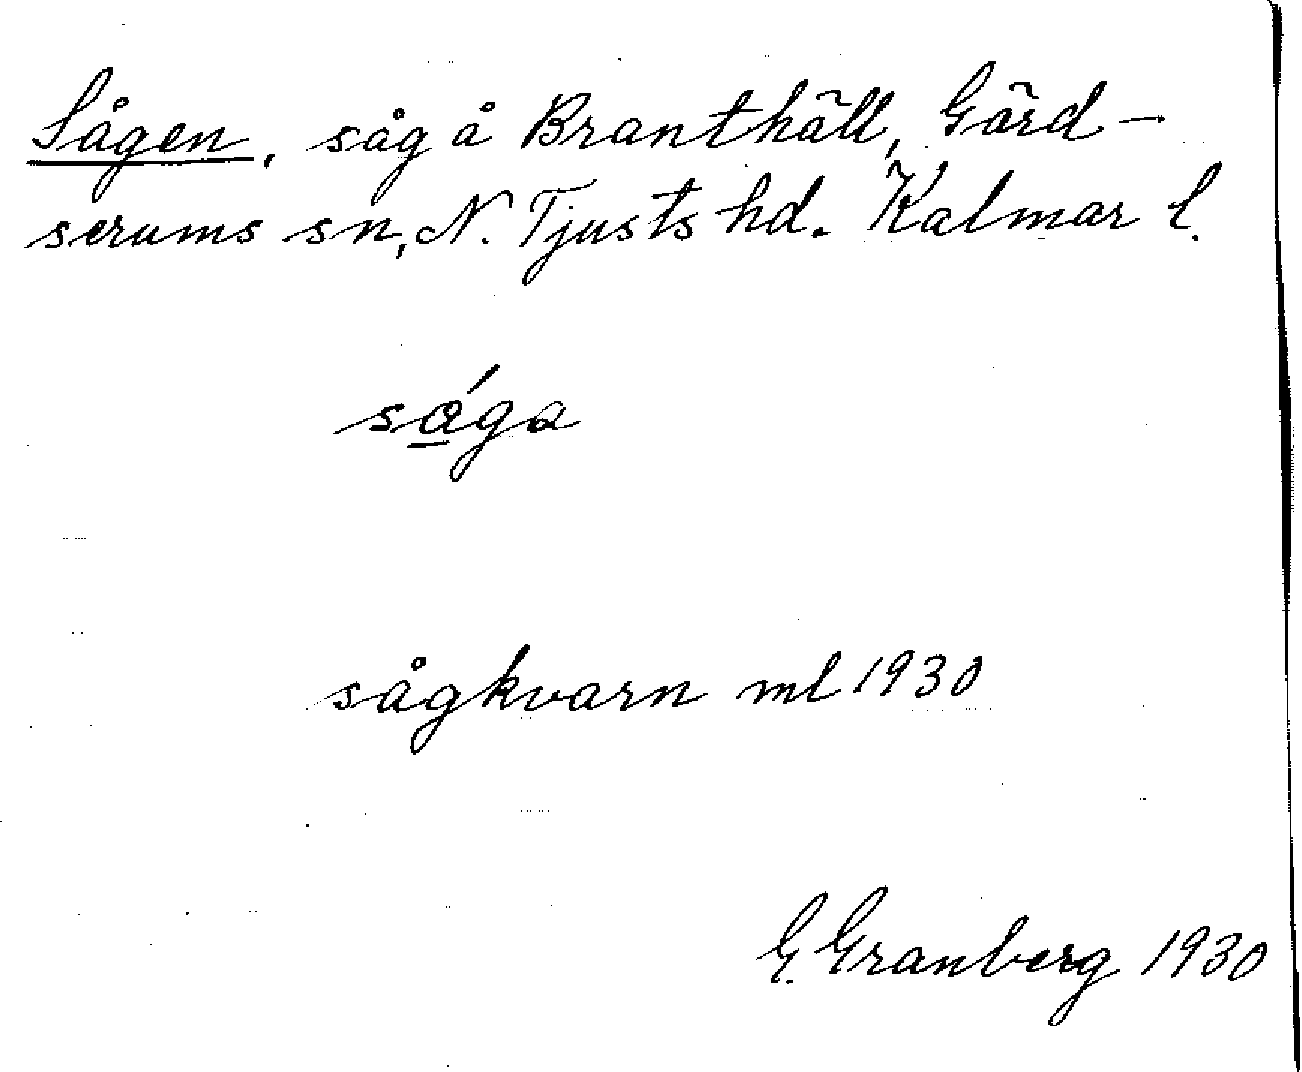 Sågen, såg å Branthäll, Gärd-
serums sn, N. Tjusts hd. Kalmar l.
såga
sågkvarn ml 1930
G. Granberg 1930